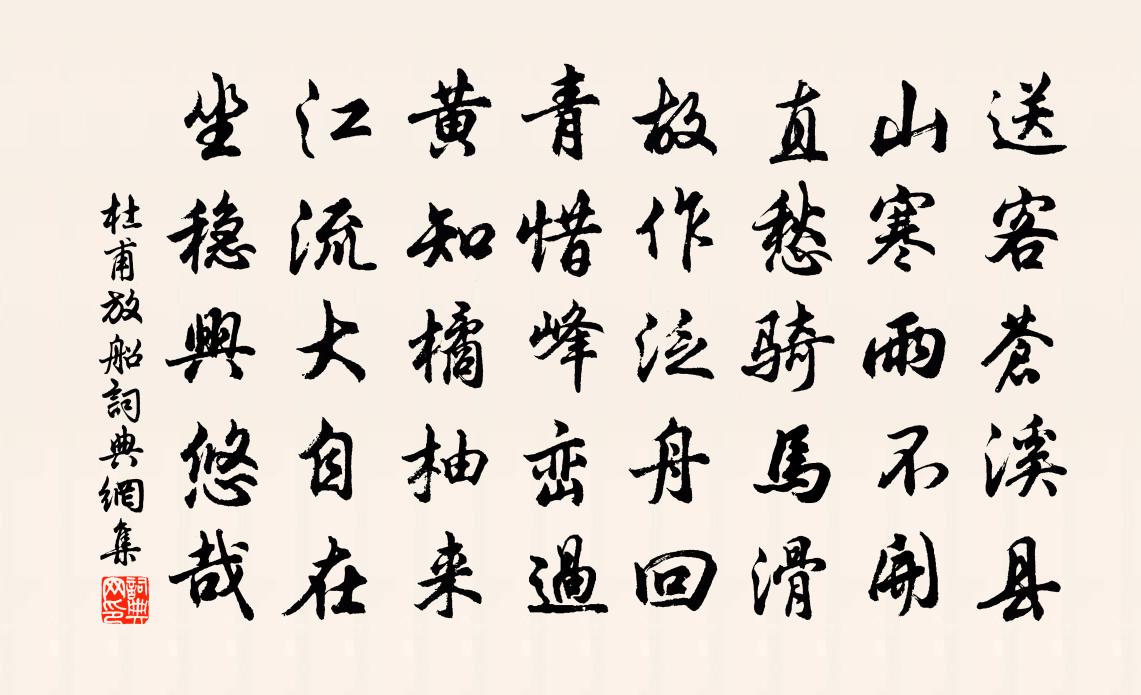 送客蒼溪县
山寒雨不開
直愁骑馬滑
故作泛舟回
青惜峰峦過
黄知橘柚来
江流大自在
坐稳興悠哉
杜甫放船詞典網集
詞典网印